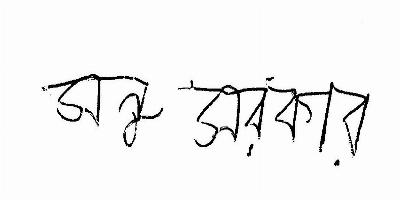 মনু সরকার